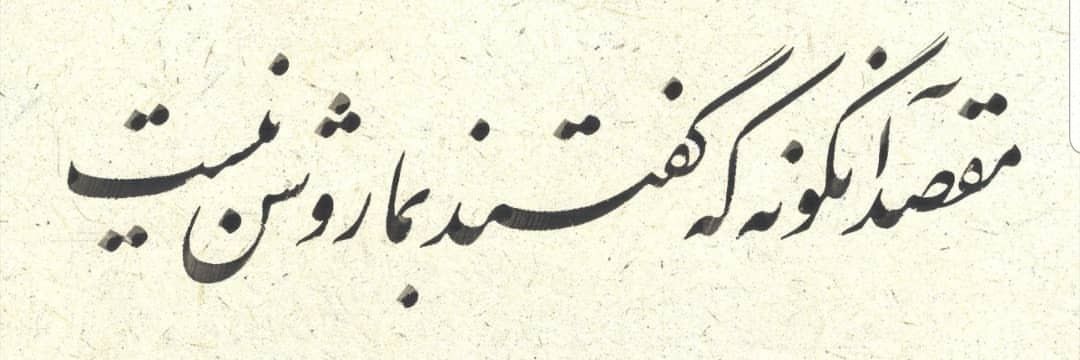 مقصد آنگونه که گفتند بما روشن نیست